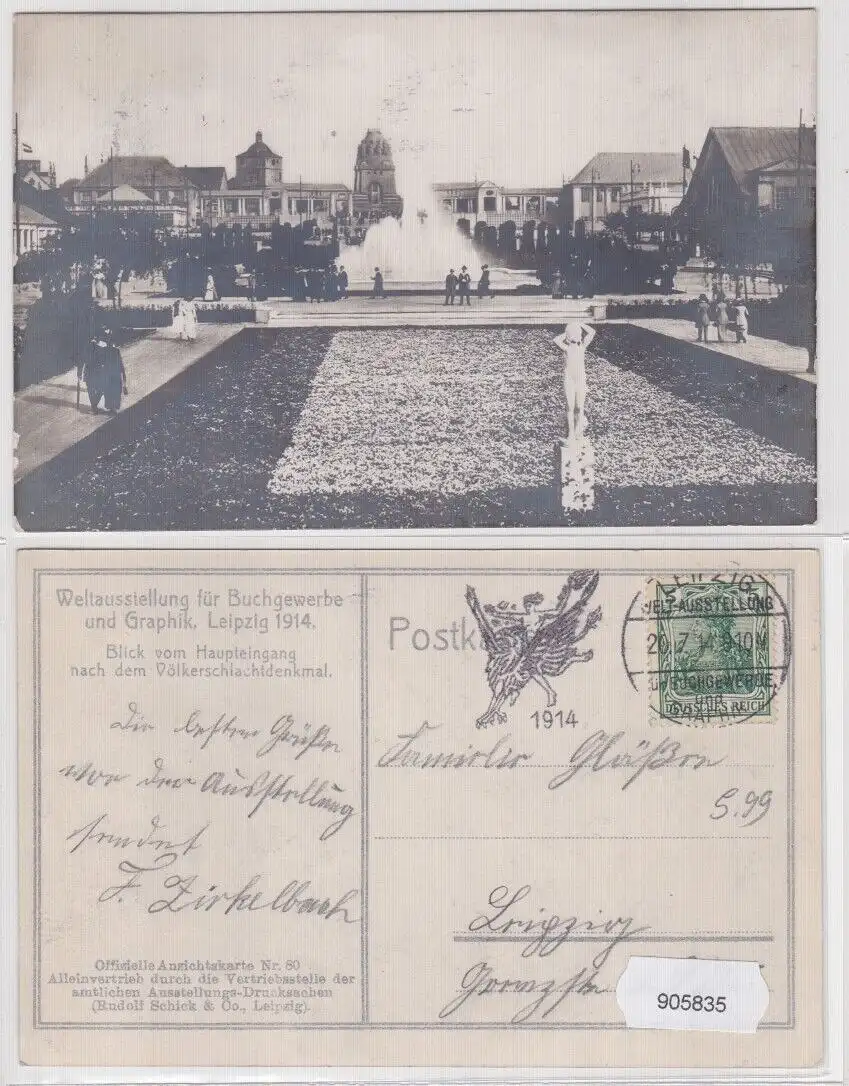 Weltausstellung für Buchgewerbe
und Graphik, Leipzig 1914.
Blick vom Haupteingang
nach dem Völkerschlachtdenkmal.
Die besten Grüße
von der Ausstellung
sendet
F. Zirkelbach
Offizielle Ansichtskarte Nr. 80
Alleinvertrieb durch die Vertriebsstelle der
amtlichen Ausstellungs-Drucksachen
(Rudolf Schick & Co., Leipzig).
Postka
1914
LEIPZIG
WELT-AUSSTELLUNG
20.7.14.9-10N
BUCHGEWERBE
und
GRAPHIK
DEUTSCHES REICH
Familie Gläßer
5.99
Leipzig
905835